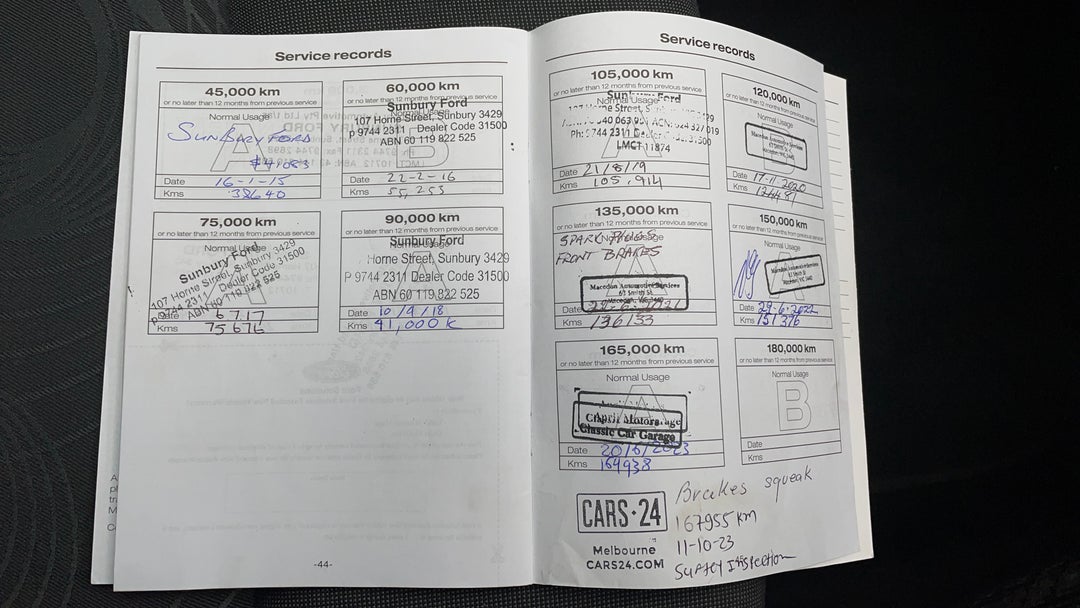 Service records
45,000 km
or no later than 12 months from previous service
Normal Usage
A
SUNBURY FORD
Date 16-1-15
Kms 38640
60,000 km
or no later than 12 months from previous service
Sunbury Ford
107 Horne Street, Sunbury 3429
P 9744 2311 Dealer Code 31500
ABN 60 119 822 525
B
Date 22-2-16
Kms 55,253
75,000 km
or no later than 12 months from previous service
Normal Usage
Sunbury Ford
107 Horne Street, Sunbury 3429
P 9744 2311 Dealer Code 31500
ABN 60 119 822 525
Date 6.7.17
Kms 75676
90,000 km
or no later than 12 months from previous service
Sunbury Ford
Horne Street, Sunbury 3429
P 9744 2311 Dealer Code 31500
ABN 60 119 822 525
Date 10/9/18
Kms 91,000 K
-44-
Service records
105,000 km
or no later than 12 months from previous service
Normal Usage
Sunbury Ford
LMCT 11874
Date 21/8/19
Kms 105,914
120,000 km
or no later than 12 months from previous service
Normal Usage
B
Macedon Automotive Services
Date 17-11-2020
Kms
135,000 km
or no later than 12 months from previous service
Normal Usage
SPARK PLUGS
FRONT BRAKES
Macedon Automotive Services
67 Smith St
Date
Kms 136133
150,000 km
or no later than 12 months from previous service
Normal Usage
Macedon Automotive Services
Date 29-6-2022
Kms 151376
165,000 km
or no later than 12 months from previous service
Normal Usage
A
April Motors
Classic Car Garage
Date 20/6/2023
Kms 164938
180,000 km
or no later than 12 months from previous service
Normal Usage
B
Date
Kms
CARS·24
Melbourne
CARS24.COM
Brakes squeak
167955 KM
11-10-23
Safety Inspection